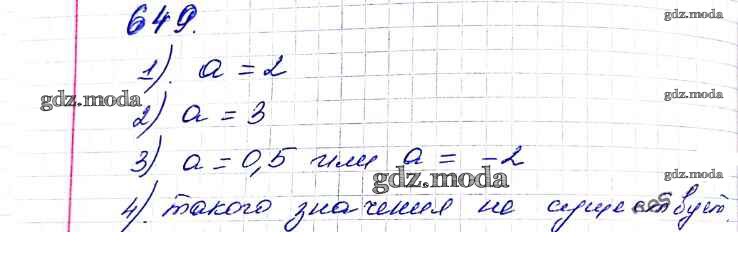 649.
gdz.moda
1). a = 2
gdz.moda
2) a = 3
3) a = 0,5 или a = -2
gdz.moda
gdz.moda
4). такого значения не существует.
gdz.moda